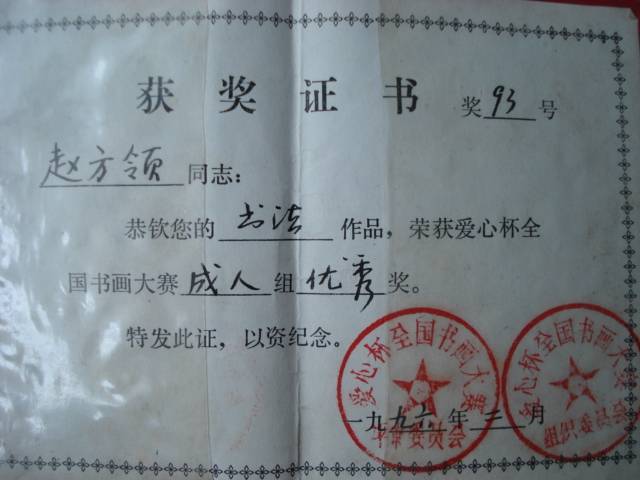 获奖证书
奖93号
赵方领同志：
恭钦您的书法作品，荣获爱心杯全
国书画大赛成人组优秀奖。
特发此证，以资纪念。
爱心杯全国书画大赛
评审委员会
爱心杯全国书画大赛
组织委员会
一九九六年三月